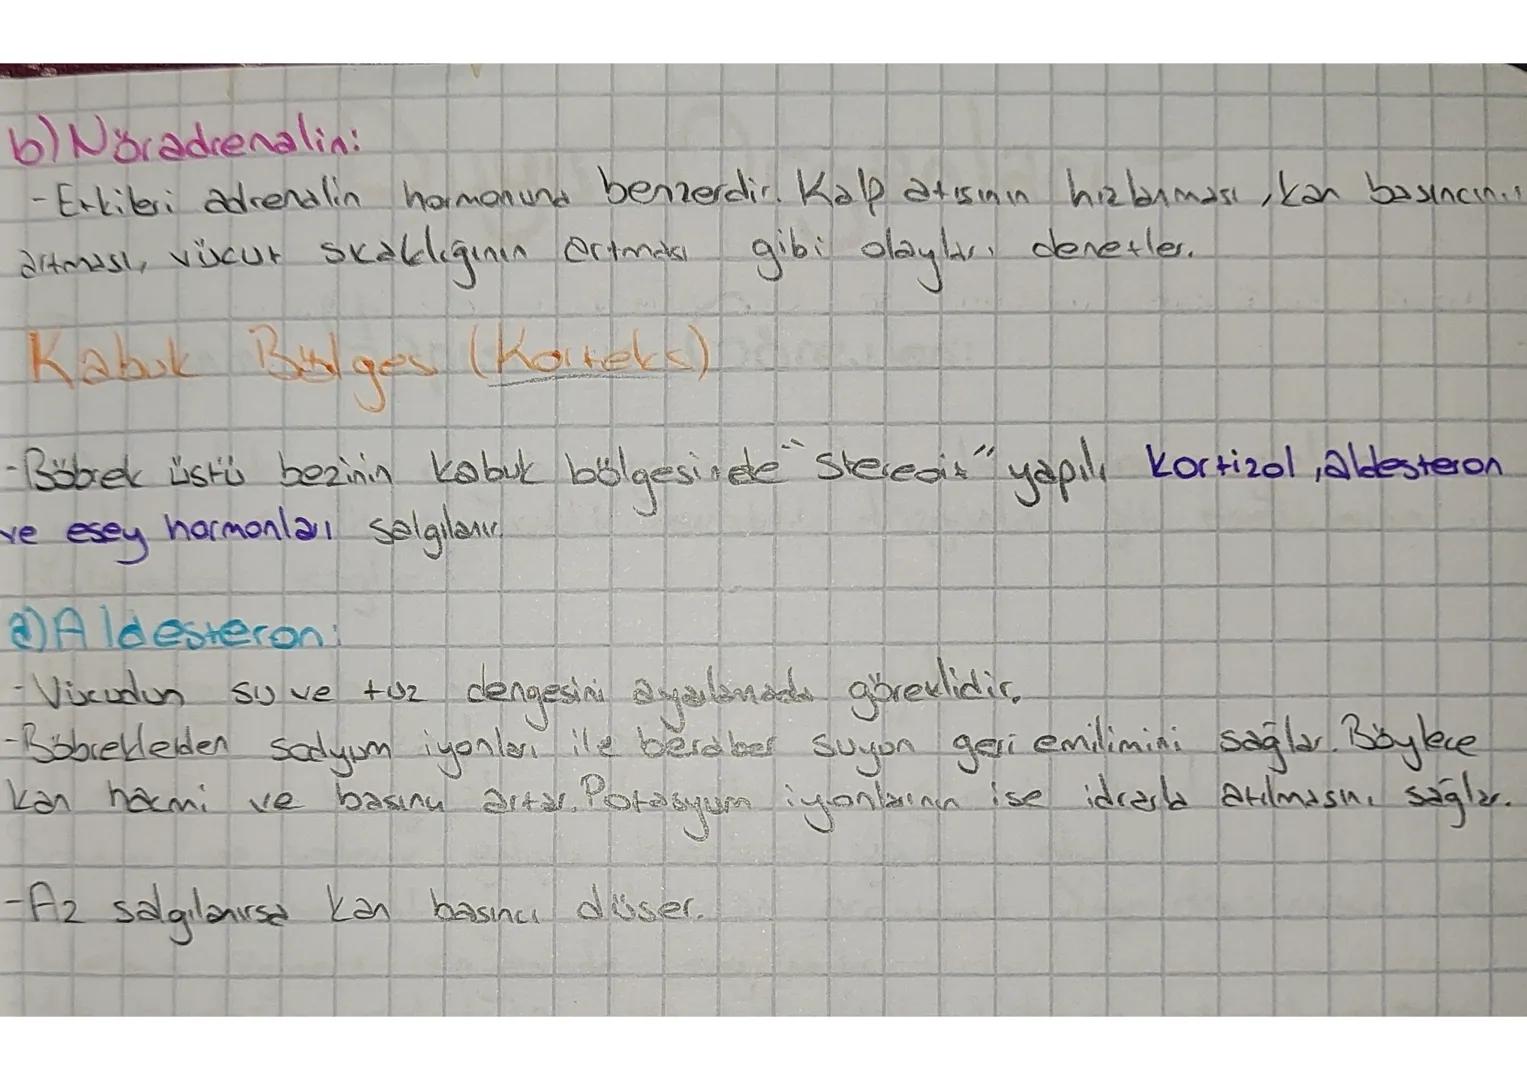 b) Nöradrenalin:
- Etkileri adrenalin hormonuna benzerdir. Kalp atışının hızlanması, kan basıncının
artması, vücut sıcaklığının artması gibi olayları denetler.
Kabuk Bölges (Korteks)
- Böbrek üstü bezinin kabuk bölgesinde "steroit" yapılı kortizol, aldesteron
ve eşey hormonları salgılanır.
a) Aldesteron:
- Vücudun su ve tuz dengesini ayarlamada görevlidir.
- Böbreklerden sodyum iyonları ile beraber suyun geri emilimini sağlar. Böylece
kan hacmi ve basıncı artar. Potasyum iyonlarının ise idrarla atılmasını sağlar.
- Az salgılanırsa kan basıncı düşer.